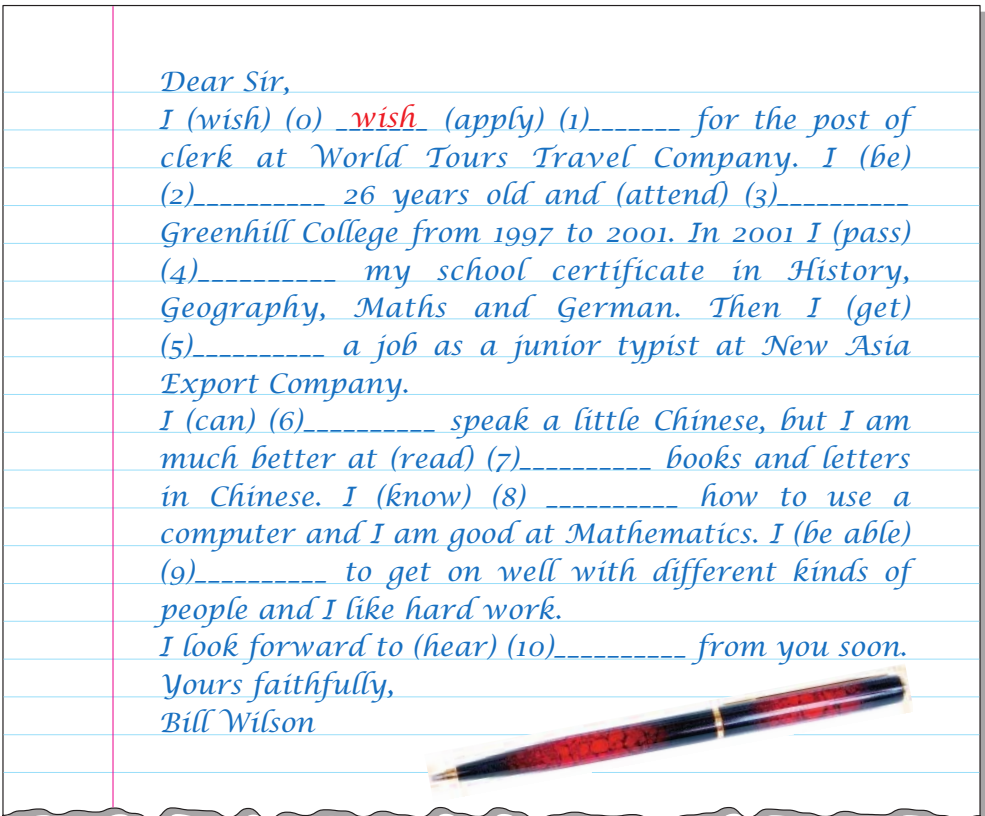 Dear Sir,
I (wish) (0) _wish_ (apply) (1)_______ for the post of
clerk at World Tours Travel Company. I (be)
(2)__________ 26 years old and (attend) (3)__________
Greenhill College from 1997 to 2001. In 2001 I (pass)
(4)__________ my school certificate in History,
Geography, Maths and German. Then I (get)
(5)__________ a job as a junior typist at New Asia
Export Company.
I (can) (6)__________ speak a little Chinese, but I am
much better at (read) (7)__________ books and letters
in Chinese. I (know) (8) __________ how to use a
computer and I am good at Mathematics. I (be able)
(9)__________ to get on well with different kinds of
people and I like hard work.
I look forward to (hear) (10)__________ from you soon.
Yours faithfully,
Bill Wilson